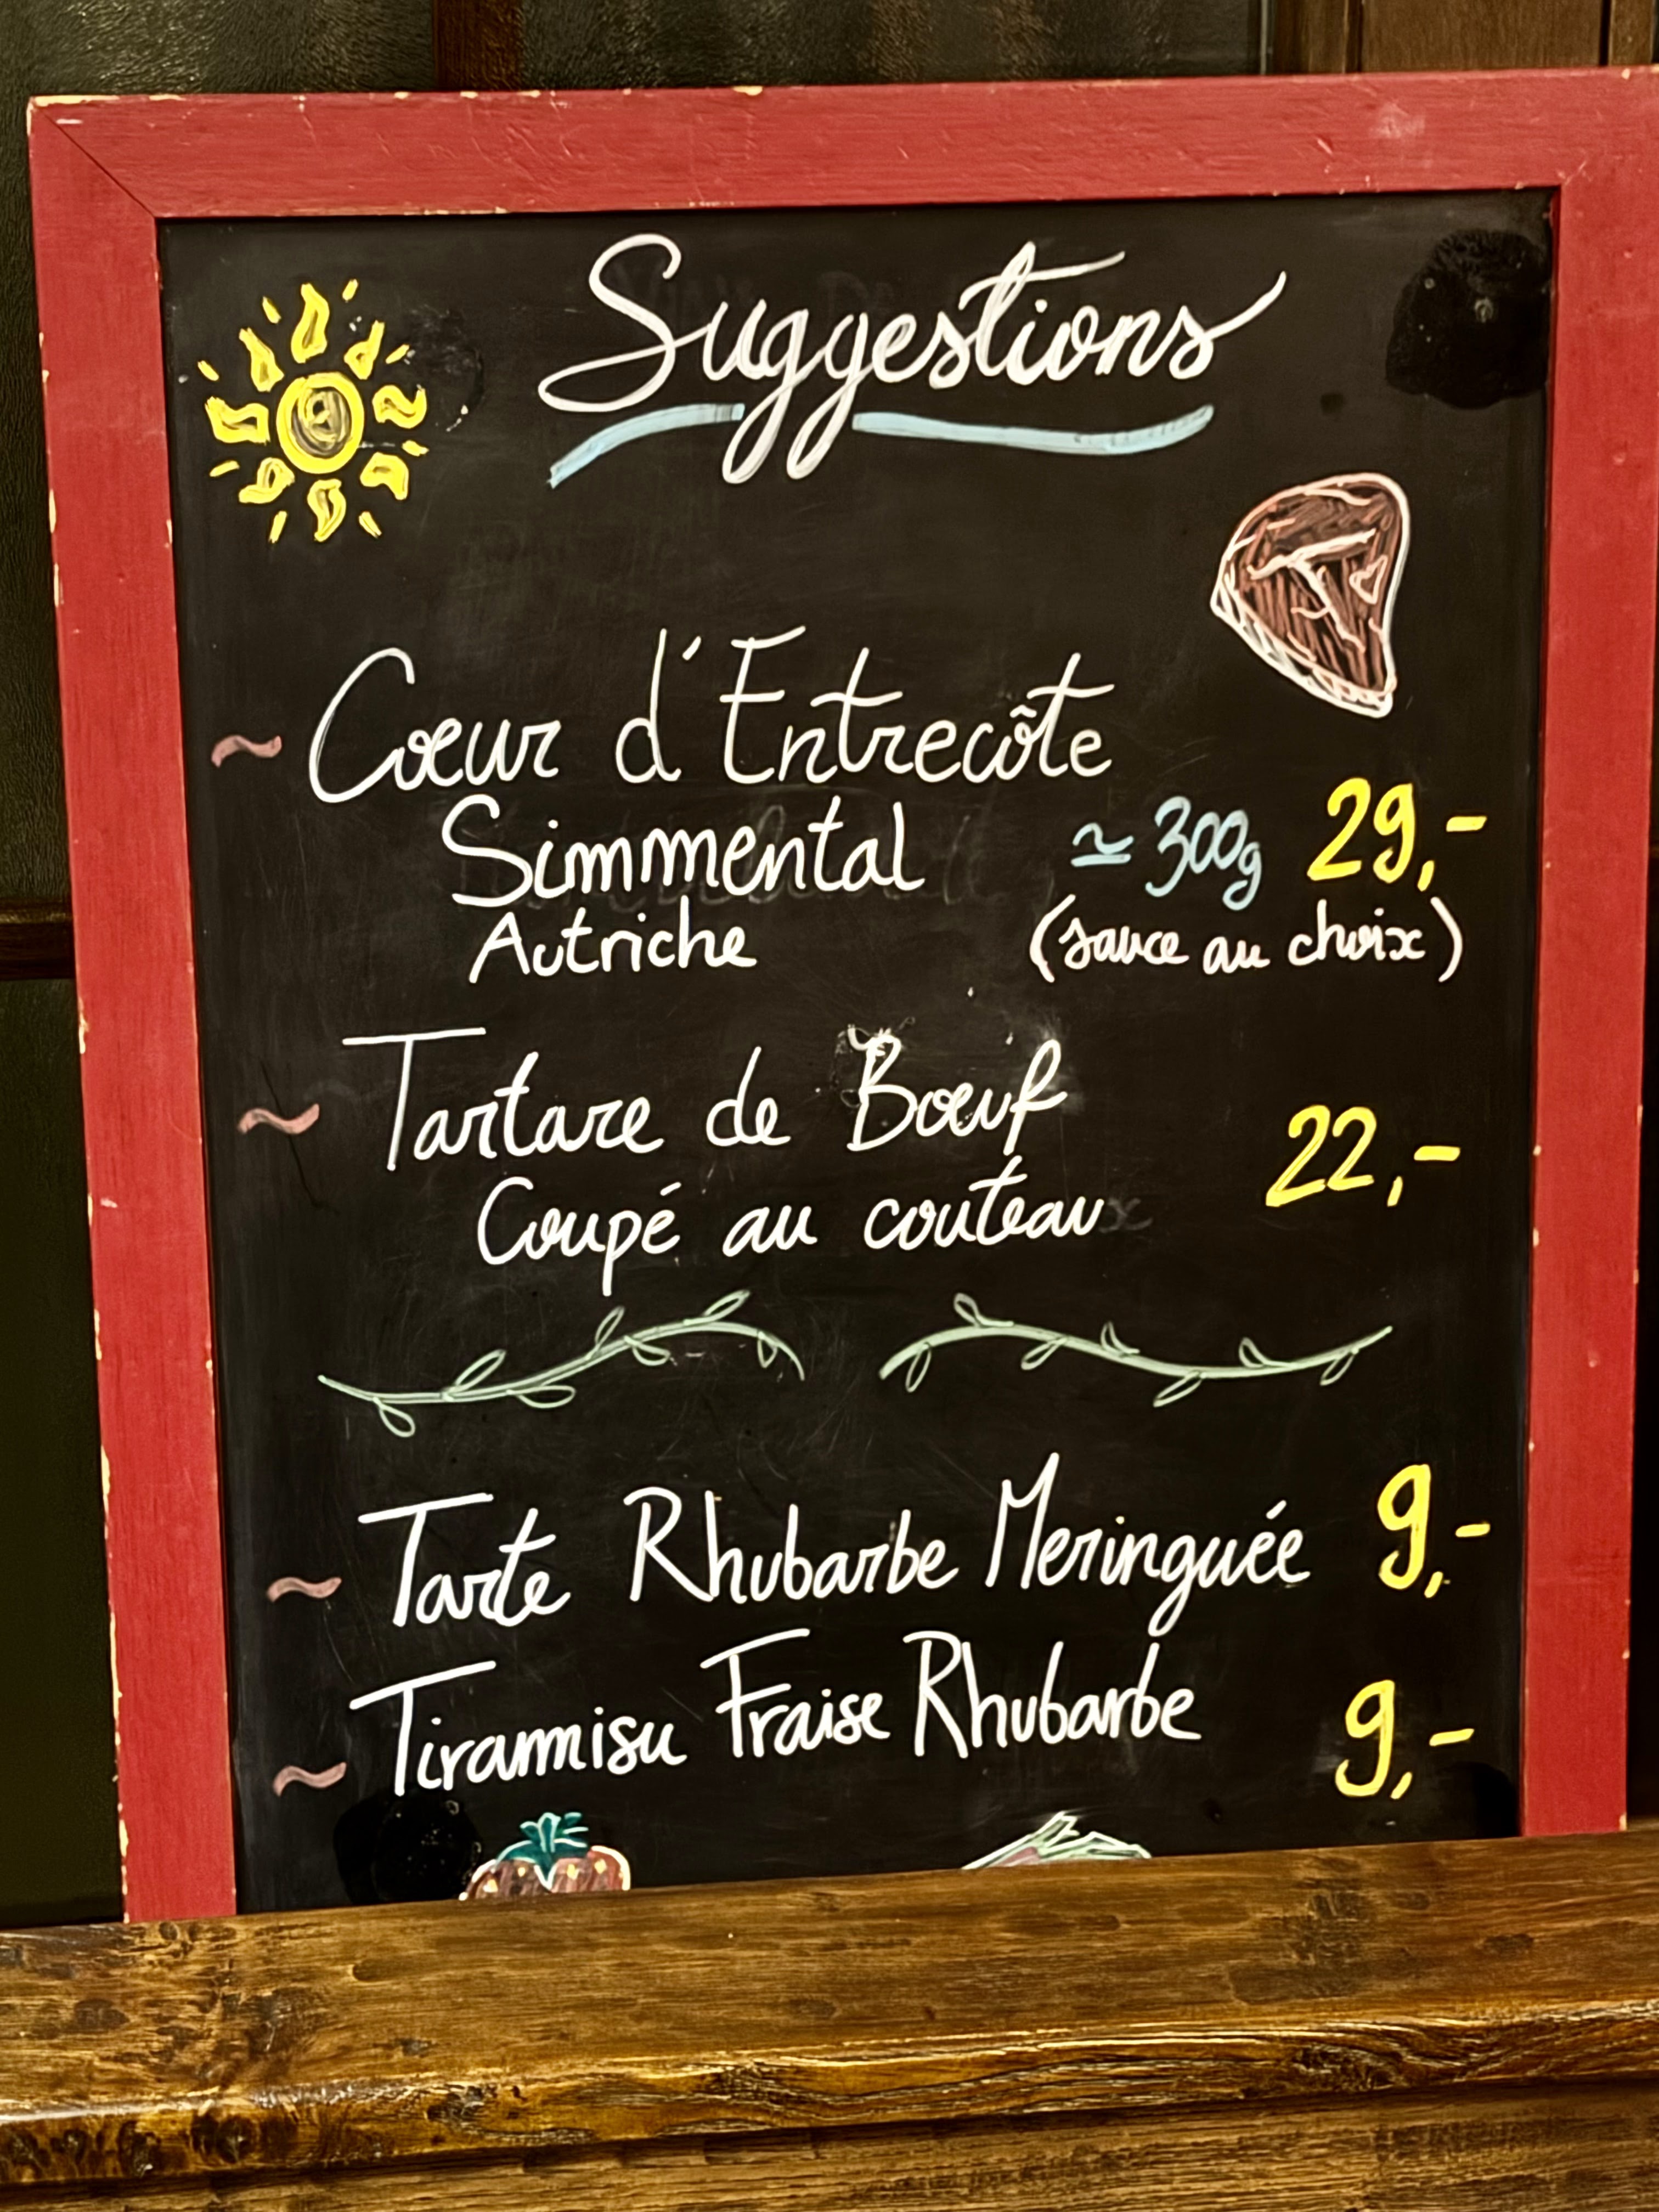 Suggestions
~ Cœur d'Entrecôte
Simmental ≃ 300g 29,-
Autriche (sauce au choix)
~ Tartare de Bœuf
22,-
Coupé au couteau
~ Tarte Rhubarbe Meringuée 9,-
~ Tiramisu Fraise Rhubarbe 9,-